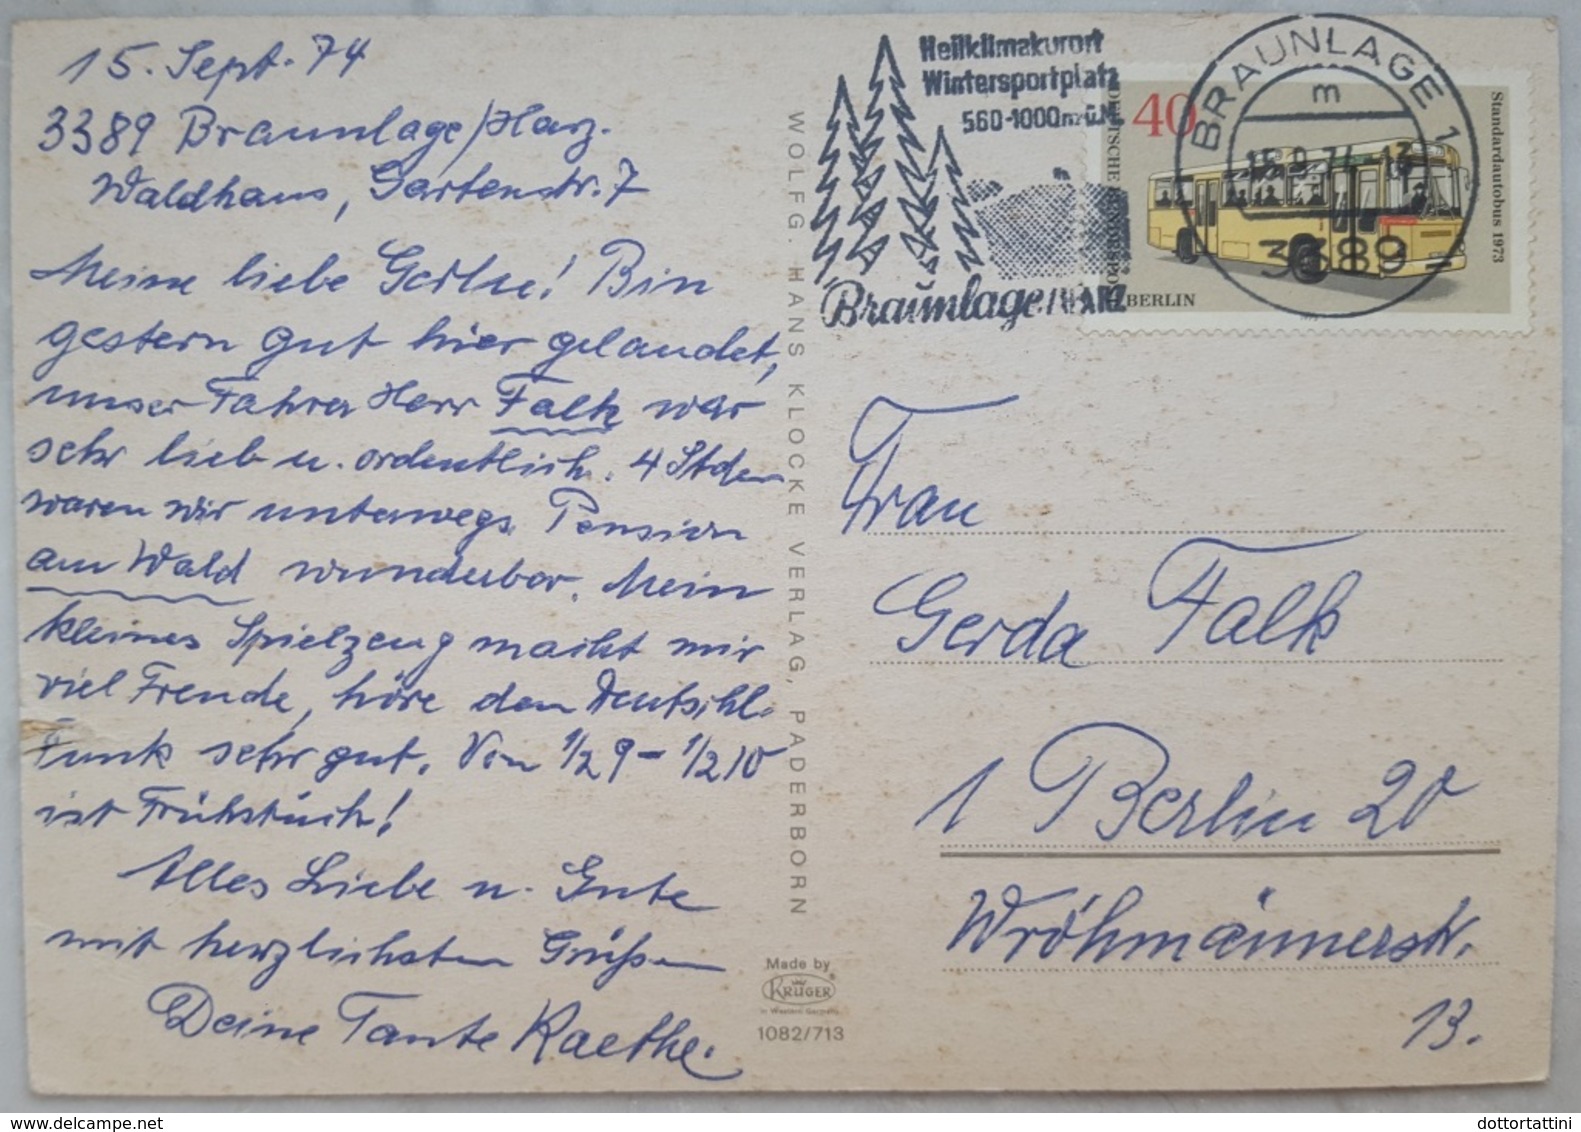 15. Sept. 74
3389 Braunlage/Harz.
Waldhaus, Gartenstr. 7
Meine liebe Gerda! Bin
gestern gut hier gelandet,
unser Fahrer Herr Falk war
sehr lieb u. ordentlich. 4 Stden
waren wir unterwegs. Pension
am Wald wunderbar. Mein
kleines Spielzeug macht mir
viel Freude, höre den Deutschl.
Funk sehr gut. Von 1/2 9 - 1/2 10
ist Frühstück!
Alles Liebe u. Gute
mit herzlichsten Grüßen
Deine Tante Kaethe.
WOLFG. HANS KLOCKE VERLAG, PADERBORN
Made by
KRÜGER
in Western Germany
1082/713
Heilklimakurort
Wintersportplatz
560-1000m ü.M.
Braunlage/HARZ
BRAUNLAGE 1
m
3389
40
DEUTSCHE BUNDESPOST
BERLIN
Standardautobus 1973
Frau
Gerda Falk
1 Berlin 20
Wröhmännerstr.
13.
dottortattini
www.delcampe.net